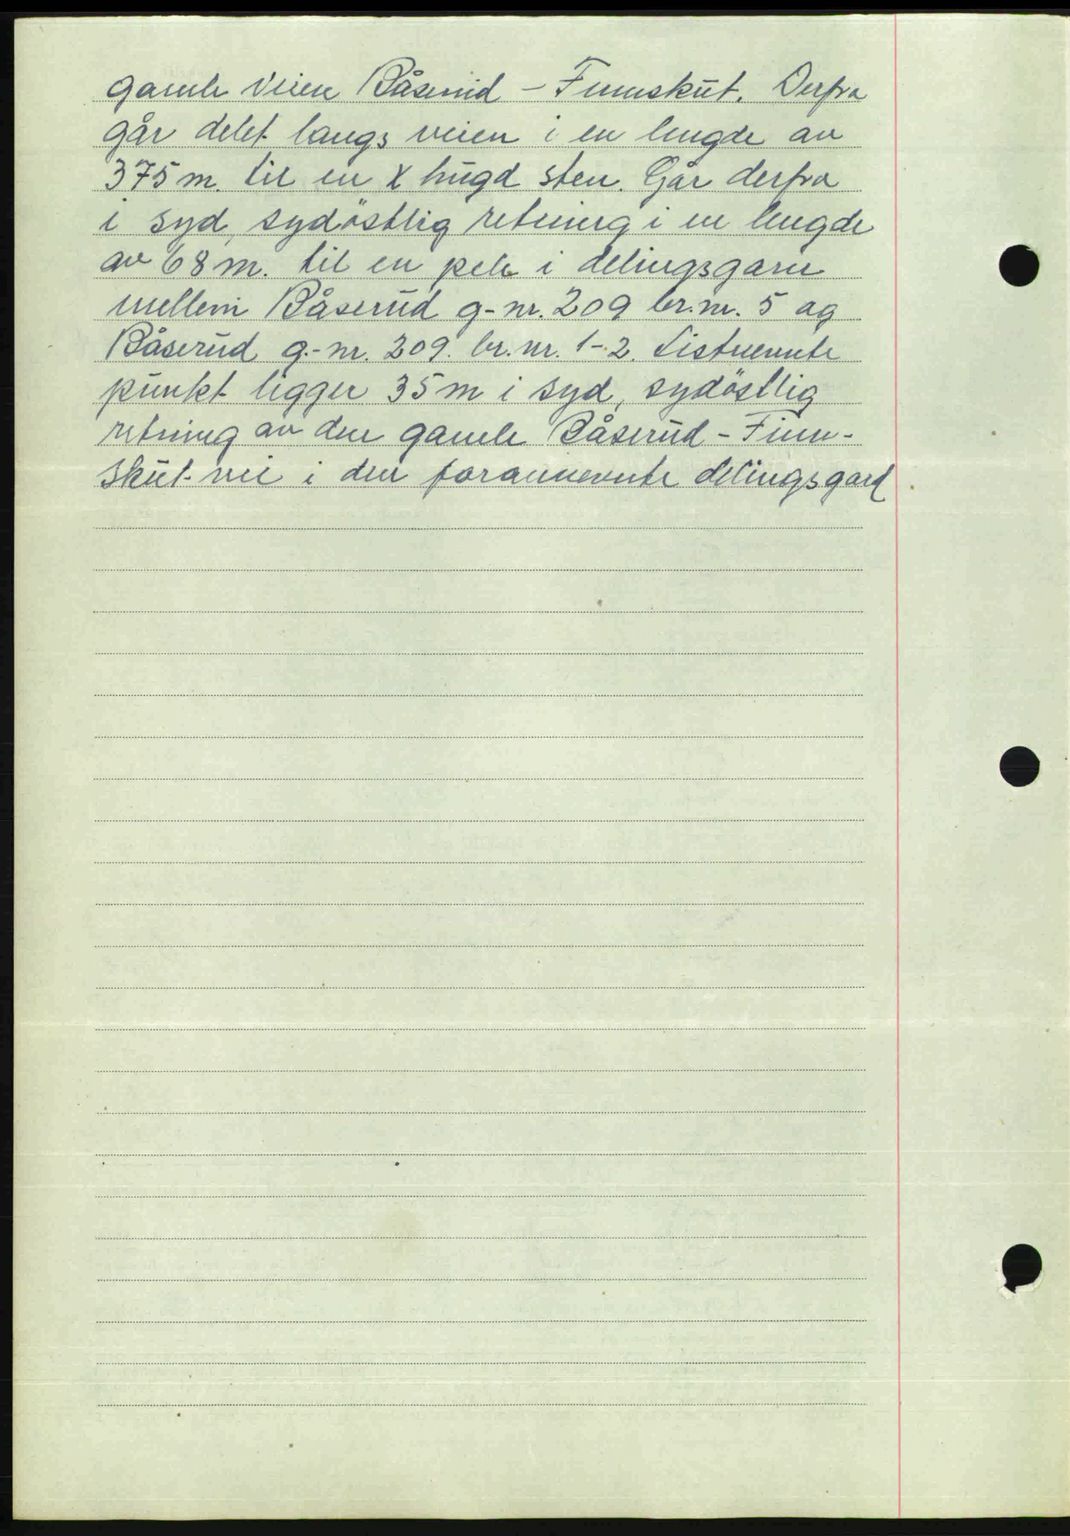 gamle veien Båserud - Finnskut. Derfra
går delet langs veien i en lengde av
375 m. til en X hugd sten. Går derfra
i syd, sydöstlig retning i en lengde
av 68 m. til en pele i delingsgare
mellem Båserud g-nr. 209 br.nr. 5 og
Båserud g.-nr. 209. br.nr. 1-2. Sistnevnte
punkt ligger 35 m i syd, sydöstlig
retning av den gamle Båserud - Finn-
skut-vei i den forannevnte delingsgard